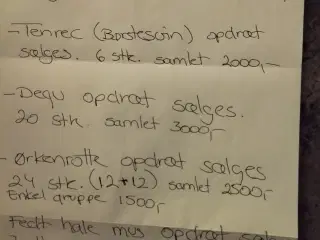 - Tenrec (Børstesvin) opdræt
sælges. 6 stk. samlet 2000,-
- Degu opdræt sælges.
20 stk. samlet 3000,-
- Ørkenrotte opdræt sælges
24 stk. (12+12) samlet 2500,-
Enkel gruppe 1500,-
Fedt hale mus opdræt